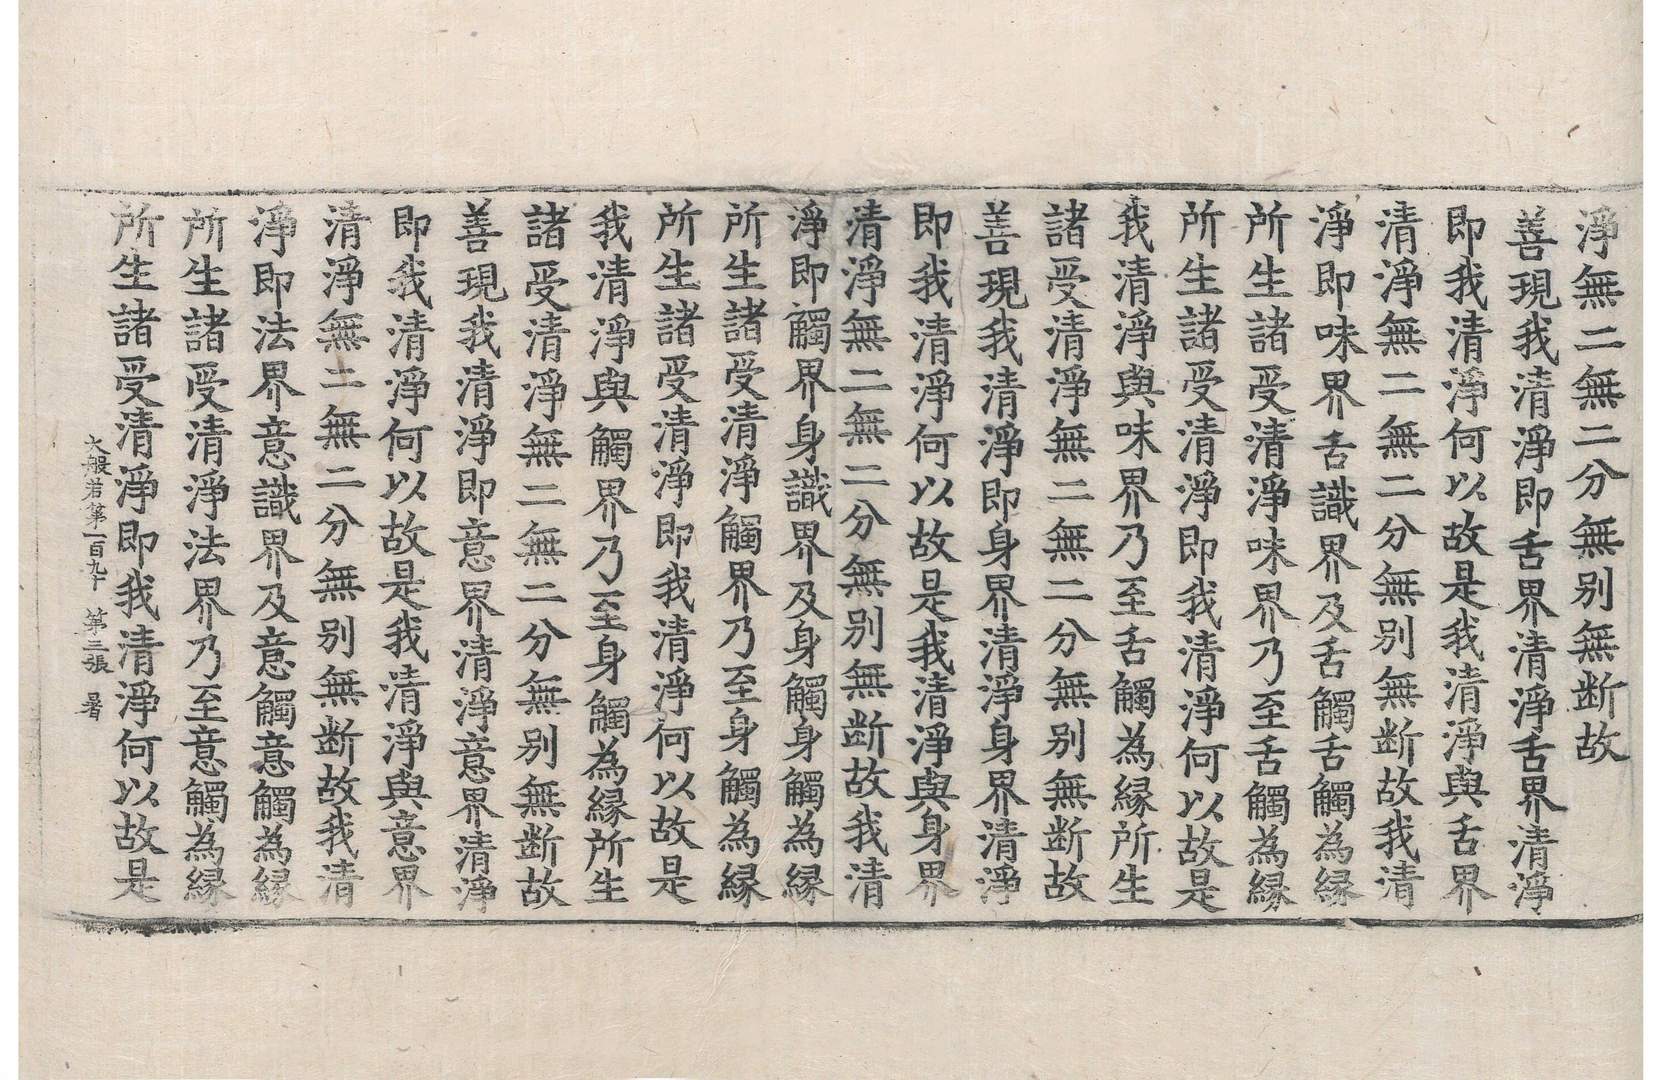 淨無二無二分無別無断故
善現我清淨即舌界清淨舌界清淨
即我清淨何以故是我清淨與舌界
清淨無二無二分無別無断故我清
淨即味界舌識界及舌觸舌觸為縁
所生諸受清淨味界乃至舌觸為縁
所生諸受清淨即我清淨何以故是
我清淨與味界乃至舌觸為縁所生
諸受清淨無二無二分無別無断故
善現我清淨即身界清淨身界清淨
即我清淨何以故是我清淨與身界
清淨無二無二分無別無断故我清
淨即觸界身識界及身觸身觸為縁
所生諸受清淨觸界乃至身觸為縁
所生諸受清淨即我清淨何以故是
我清淨與觸界乃至身觸為縁所生
諸受清淨無二無二分無別無断故
善現我清淨即意界清淨意界清淨
即我清淨何以故是我清淨與意界
清淨無二無二分無別無断故我清
淨即法界意識界及意觸意觸為縁
所生諸受清淨法界乃至意觸為縁
所生諸受清淨即我清淨何以故是
大般若第一百九十 第三張 暑